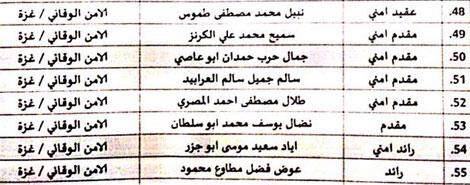 48. عقيد امني نبيل محمد مصطفى طموس الامن الوقائي / غزة
49. مقدم امني سميح محمد علي الكرنز الامن الوقائي / غزة
50. مقدم امني جمال حرب حمدان ابو عاصي الامن الوقائي / غزة
51. مقدم امني سالم جميل سالم العرابيد الامن الوقائي / غزة
52. مقدم امني طلال مصطفى احمد المصري الامن الوقائي / غزة
53. مقدم نضال يوسف محمد ابو سلطان الامن الوقائي / غزة
54. رائد امني اياد سعيد موسى ابو جزر الامن الوقائي / غزة
55. رائد عوض فضل مطاوع محمود الامن الوقائي / غزة